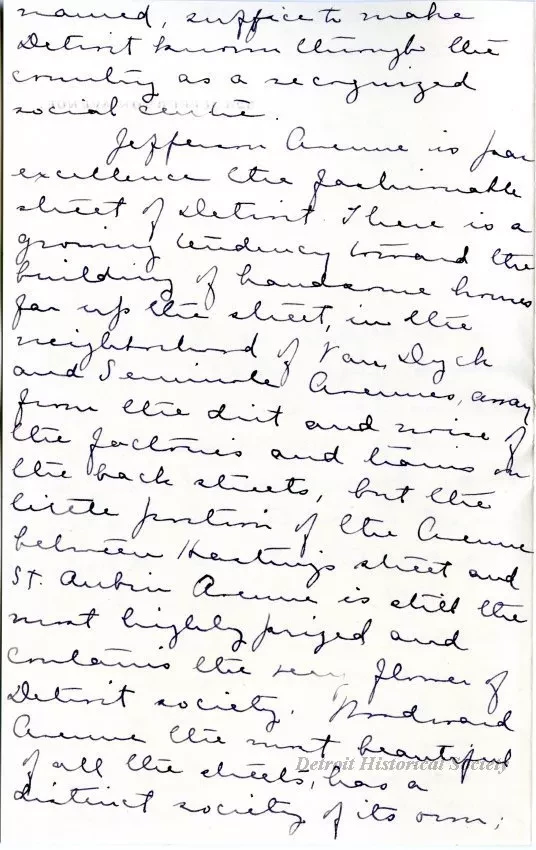 named, suffice to make
Detroit known through the
country as a recognized
social centre.
Jefferson Avenue is par
excellence the fashionable
street of Detroit. There is a
growing tendency toward the
building of handsome homes
far up the street, in the
neighborhood of Van Dyck
and Seminole Avenues, away
from the dirt and noise of
the factories and trains on
the back streets, but the
little portion of the Avenue
between Hastings street and
St. Aubin Avenue is still the
most highly prized and
contains the very flower of
Detroit society. Woodward
Avenue the most beautiful
of all the streets, has a
Detroit Historical Society
distinct society of its own;